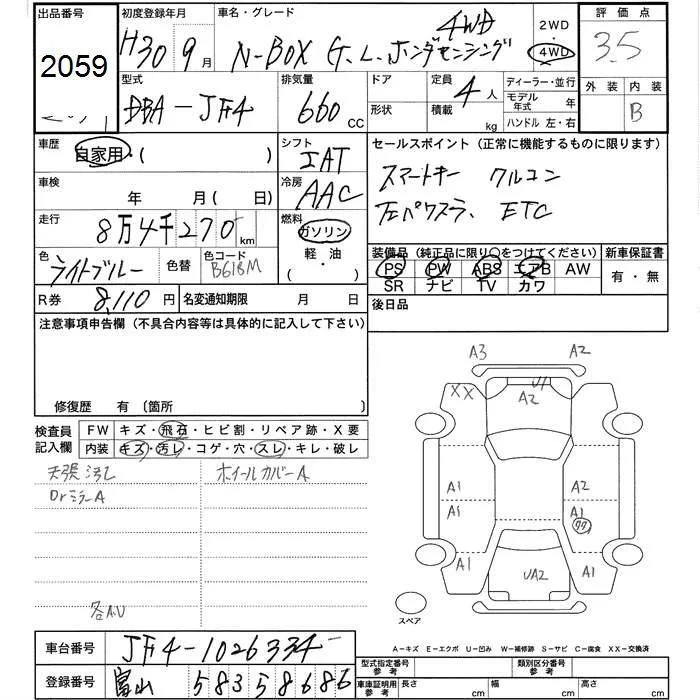 出品番号 初度登録年月 車名・グレード 2WD 評価点
2059 H30 9月 N-BOX G.L.ホンダセンシング 4WD ・ 4WD 3.5
型式 排気量 ドア 定員 ディーラー・並行 外装 内装
DBA-JF4 660 CC 形状 4人 積載 kg モデル年式 年 B
ハンドル 左・右
車歴 自家用・( ) シフト IAT セールスポイント (正常に機能するものに限ります)
車検 年 月( 日) 冷房 AAC スマートキー クルコン
走行 8万4千270km 燃料 ガソリン 左パワスラ、 ETC
色 ライトブルー 色替 色コード B618M 軽・油 ( ・ ) 装備品 (純正品に限り○をつけてください) 新車保証書
PS PW ABS エアB AW 有・無
SR ナビ TV カワ
R券 8,110円 名変通知期限 月 日 後日品
注意事項申告欄 (不具合内容等は具体的に記入して下さい)
修復歴 有 〔箇所 〕
検査員記入欄 FW キズ・飛石・ヒビ割・リペア跡・X要
内装 キズ・汚レ・コゲ・穴・スレ・キレ・破レ
天張汚レ ホイールカバーA
DrミラーA
各AU
A3 A2
XX U1
A2
A1 A2
A1 A1
A1 UA2 A1
スペア
A-キズ E-エクボ U-凹み W-補修跡 S-サビ C-腐食 XX-交換済
車台番号 JF4-1026334
型式指定番号 参考 類別区分番号 参考
登録番号 富山 583 5 8686
車庫証明用 参考 長さ cm 幅 cm 高さ cm